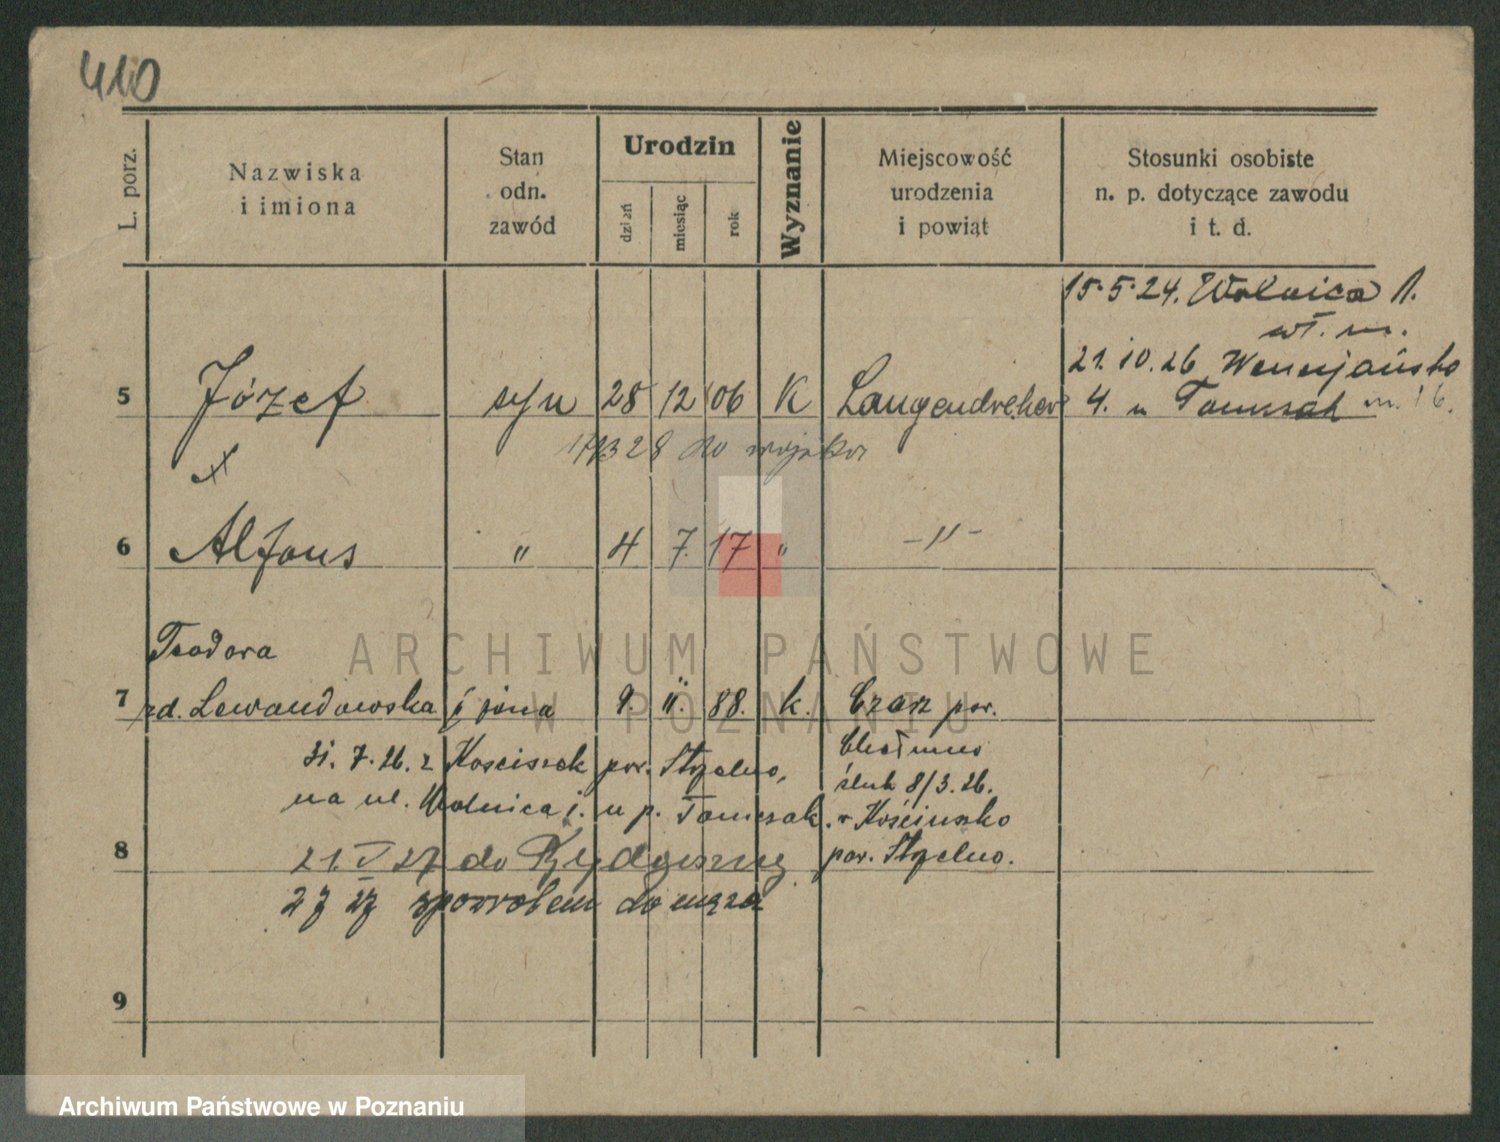 410
L. porz.
Nazwiska
i imiona
Stan
odn.
zawód
Urodzin
dzień
miesiąc
rok
Wyznanie
Miejscowość
urodzenia
i powiąt
Stosunki osobiste
n. p. dotyczące zawodu
i t. d.
15.5.24. Wolnica 1.
wł. m.
21.10.26 Wenecjańska
5 Józef syn 28 12 06 K Langendreher 4. u Tomczak m. 16.
28 do wojska
x
6 Alfons " 4 7. 17 " -"-
Teodora
7 zd. Lewandowska żona 9. 11. 88. k. Czarz pow.
31. 7. 26. z Kościszek pow. Strzelno, Chełmno
ślub 8/3. 26.
na ul. Wolnica 1. u p. Tomczak. w Kościuszko
8 21. V 27 do Bydgoszczy pow. Strzelno.
27 spowrotem do męża
9
ARCHIWUM PAŃSTWOWE
W POZNANIU
Archiwum Państwowe w Poznaniu